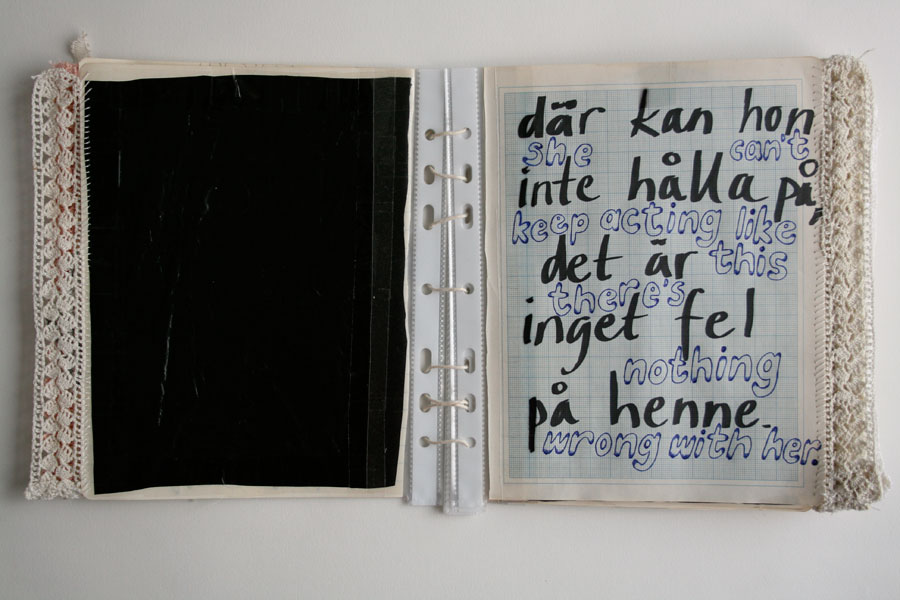 där kan hon
she can't
inte hålla på,
keep acting like
det är this
there's
inget fel
nothing
på henne.
wrong with her.